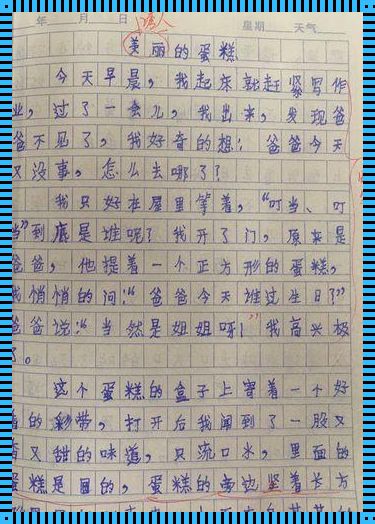 年 月 日 星期 天气
诱人
美丽的蛋糕
今天早晨，我起床就赶紧写作
业，过了一会儿，我出来，发现爸
爸不见了，我好奇的想：爸爸今天
又没事，怎么去哪了？
我只好在屋里等着，“叮当、叮
当”到底是谁呢？我开了门，原来是
爸爸，他提着一个正方形的蛋糕，
我悄悄的问：“爸爸今天谁过生日？”
爸爸说：“当然是姐姐呀！”我高兴极
了。
这个蛋糕的盒子上寄着一个好
看的彩带，打开后我闻到了一股又
香又甜的味道，只流口水，里面的
蛋糕是圆的，蛋糕的旁边竖着长方